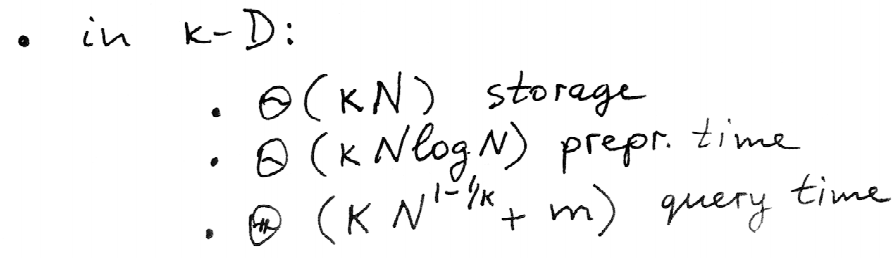 • in k-D:
• Θ(kN) storage
• Θ(kNlogN) prepr. time
• Θ(kN^{1-1/k} + m) query time